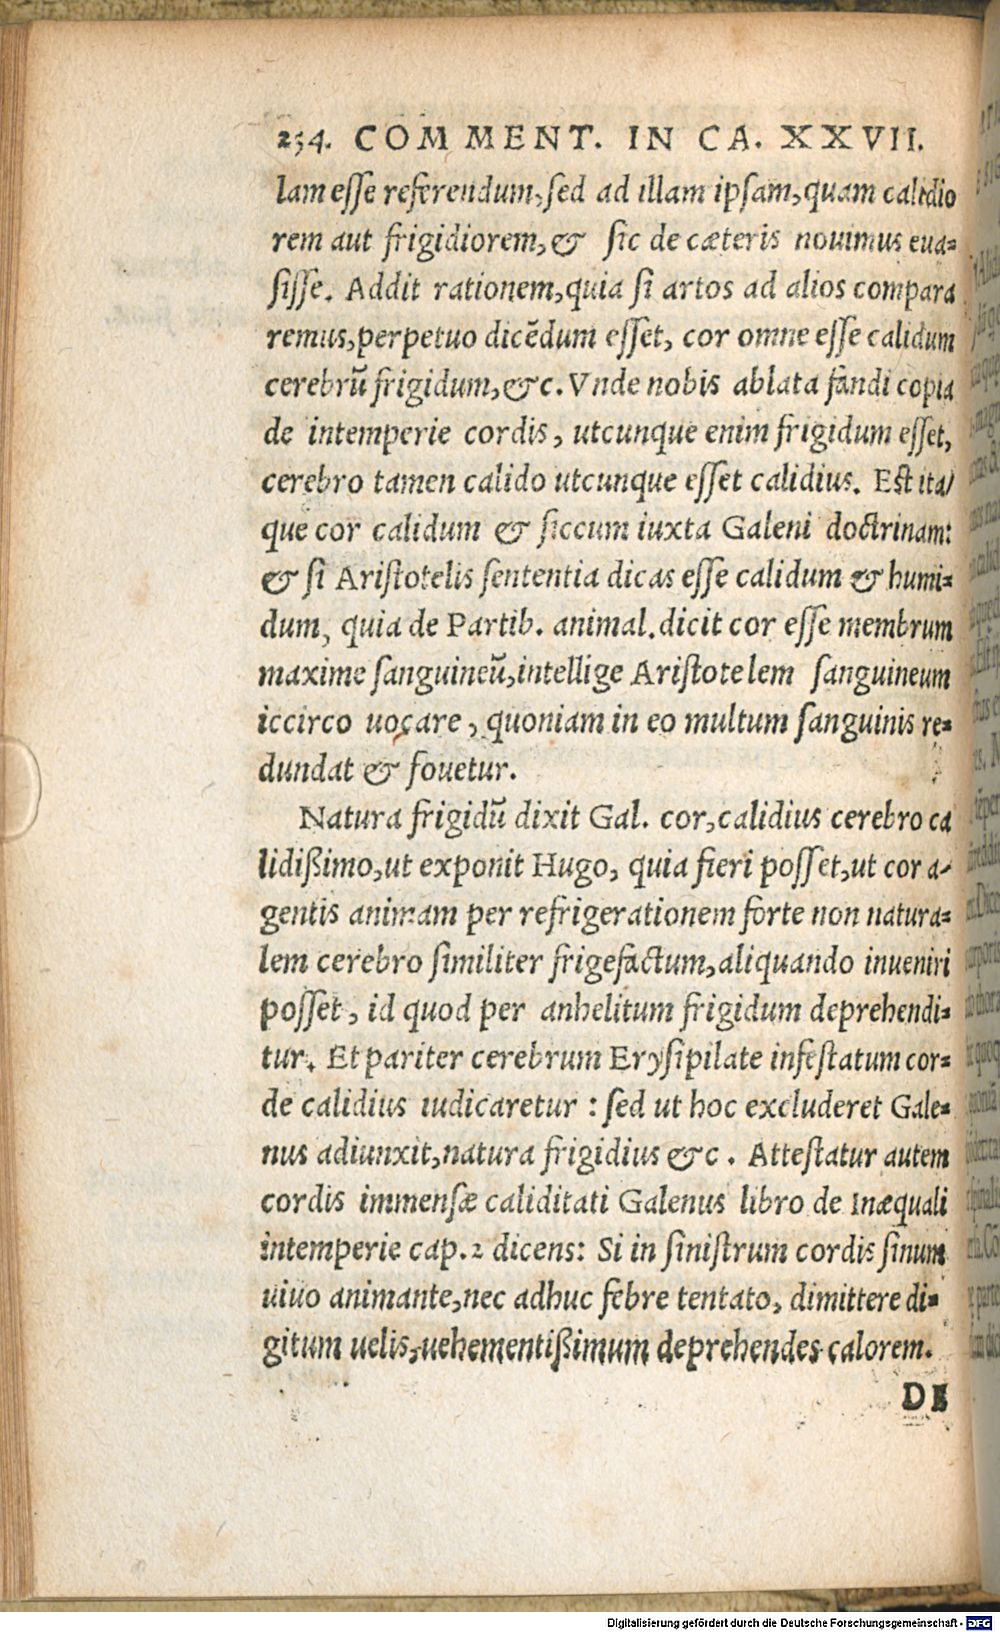 234. COMMENT. IN CA. XXVII.
lam esse referendum, sed ad illam ipsam, quam calidio
rem aut frigidiorem, & sic de cæteris nouimus eua-
sisse. Addit rationem, quia si artos ad alios compara
remus, perpetuo dicẽdum esset, cor omne esse calidum
cerebrũ frigidum, &c. Vnde nobis ablata fandi copia
de intemperie cordis, utcunque enim frigidum esset,
cerebro tamen calido utcunque esset calidius. Est ita/
que cor calidum & siccum iuxta Galeni doctrinam:
& si Aristotelis sententia dicas esse calidum & humi-
dum, quia de Partib. animal. dicit cor esse membrum
maxime sanguineũ, intellige Aristotelem sanguineum
iccirco uocare, quoniam in eo multum sanguinis re-
dundat & fouetur.
Natura frigidũ dixit Gal. cor, calidius cerebro ca
lidißimo, ut exponit Hugo, quia fieri posset, ut cor a-
gentis animam per refrigerationem forte non natura-
lem cerebro similiter frigefactum, aliquando inueniri
posset, id quod per anhelitum frigidum deprehendi-
tur. Et pariter cerebrum Erysipilate infestatum cor-
de calidius iudicaretur : sed ut hoc excluderet Gale-
nus adiunxit, natura frigidius &c. Attestatur autem
cordis immensæ caliditati Galenus libro de Inæquali
intemperie cap. 2 dicens: Si in sinistrum cordis sinum
uiuo animante, nec adhuc febre tentato, dimittere di-
gitum uelis, uehementißimum deprehendes calorem.
DE
Digitalisierung gefördert durch die Deutsche Forschungsgemeinschaft - DFG